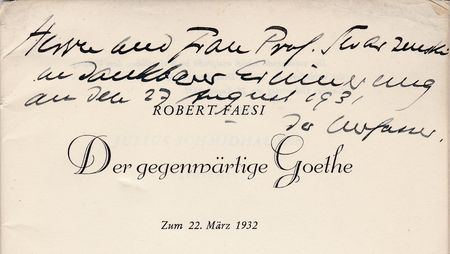 Herrn und Frau Prof. Swarzenski
in dankbarer Erinnerung
an den 27 August 1931
der Verfasser.
ROBERT FAESI
Der gegenwärtige Goethe
Zum 22. März 1932